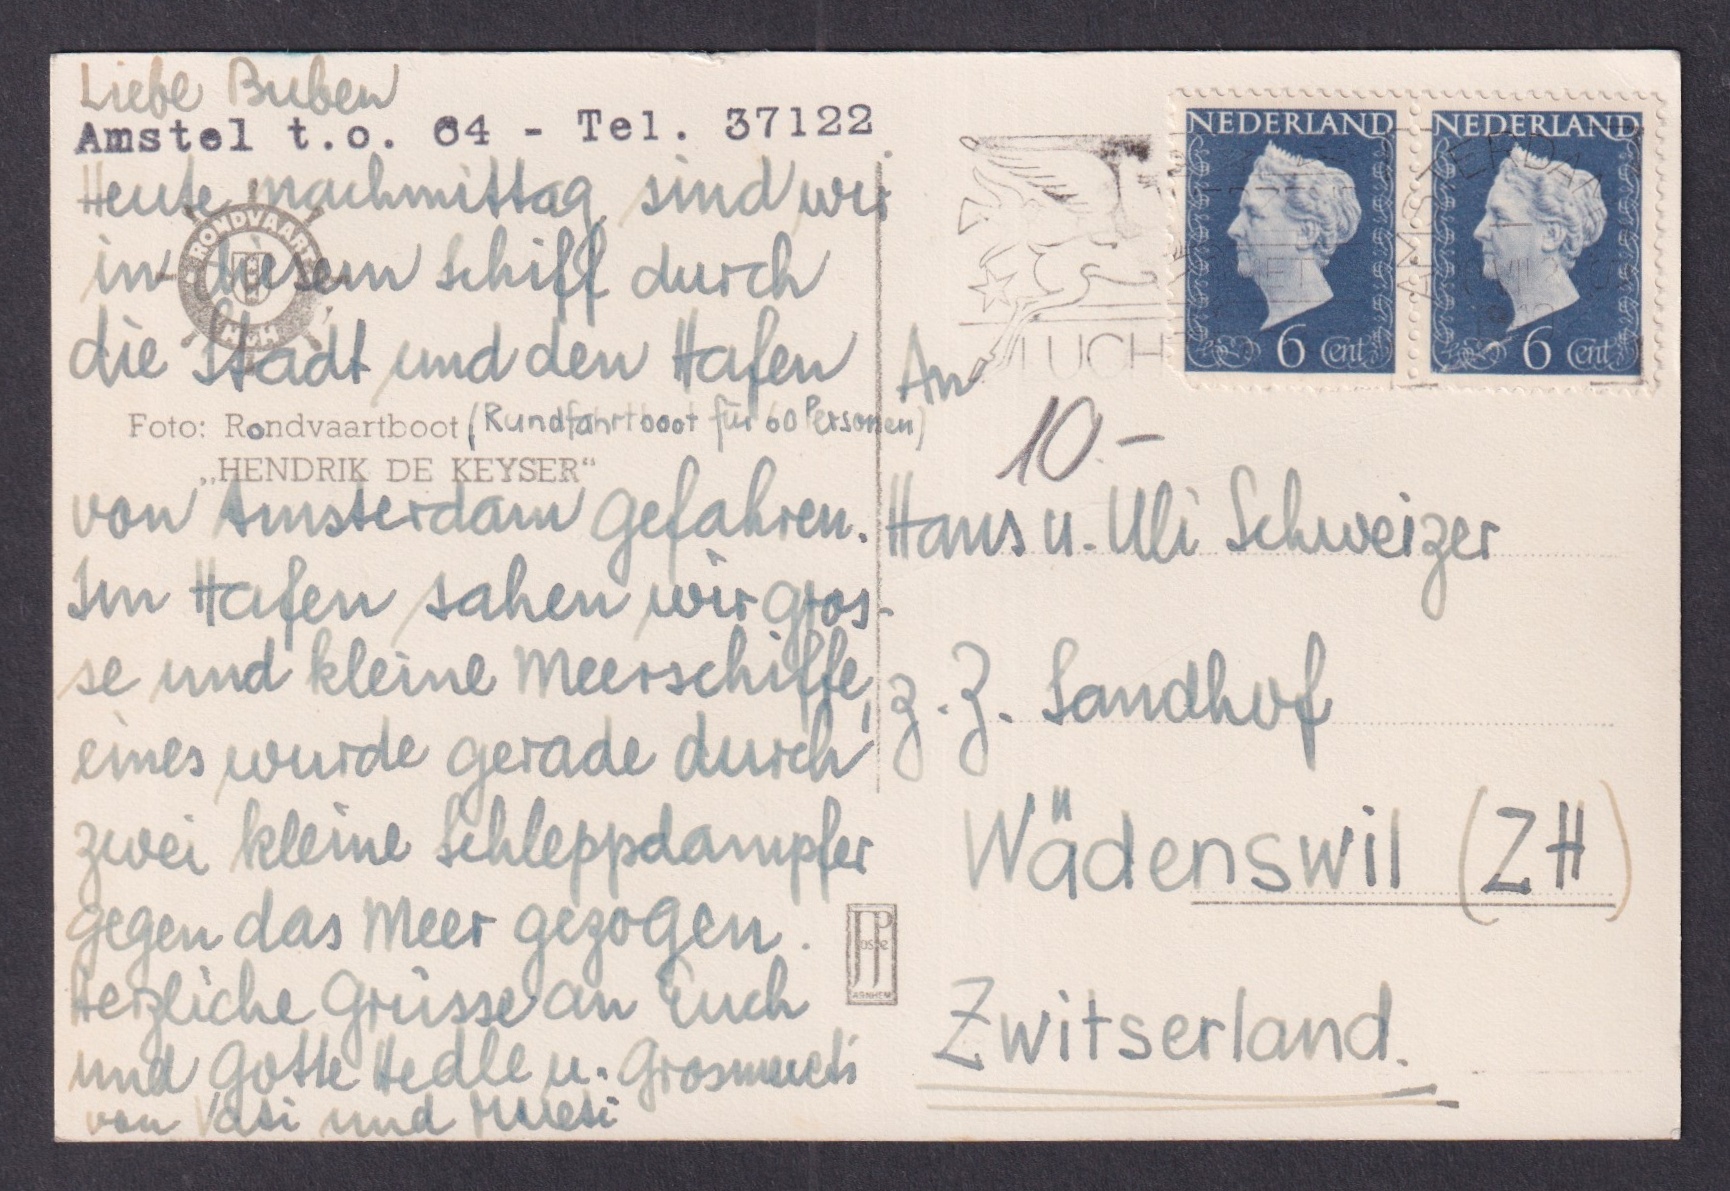 Liebe Buben
Amstel t.o. 64 - Tel. 37122
Heute nachmittag sind wir
in diesem Schiff durch
die Stadt und den Hafen
Foto: Rondvaartboot (Rundfahrtboot für 60 Personen)
„HENDRIK DE KEYSER“
von Amsterdam gefahren.
Im Hafen sahen wir gros-
se und kleine Meerschiffe,
eines wurde gerade durch
zwei kleine Schleppdampfer
gegen das Meer gezogen.
Herzliche Grüsse an Euch
und Gotte Hedle u. Grosmueti
von Vati und Mueti
RONDVAART
JosPé
ARNHEM
NEDERLAND
6 Cent
NEDERLAND
6 Cent
AMSTERDAM
LUCH
An
10.-
Hans u. Uli Schweizer
z. Z. Sandhof
Wädenswil (ZH)
Zwitserland.